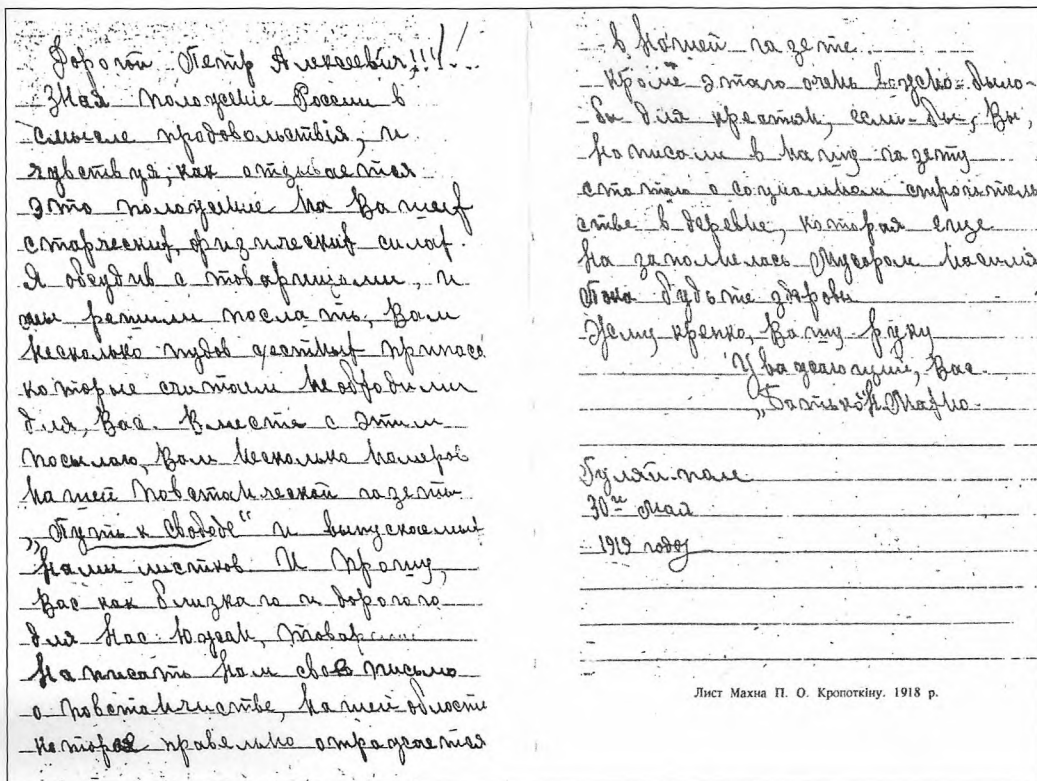 Дорогой Петр Алексеевич!!!
Зная положение России в
смысле продовольствія, и
чувствуя, как отзывается
это положение на Ваших
старческих, физических силах.
Я обсудив с товарищами, и
мы решили послать, Вам
несколько пудов честных припасо
которые считаем необходими
для, Вас. Вместе с этим
посылаю, Вам несколько номеров
нашей повстанческой газеты
„Путь к Свободе" и выпускаемых
нами листков. И Прошу,
Вас как близкаго и дорогого
для нас южан, товарищ
написать нам свое письмо
о повстанчистве, нашей области
которая правельно отражается
в нашей газете
Кроме этаго очень важно-было-
бы для крестьян, если-бы, Вы,
написали в нашу газету
статью о социальном строитель
стве в деревне, которая еще
на заполнелась Мусором насилия
Пока будьте здоровы
Жму крепко, Вашу руку
Уважающий, Вас.
„Батько" Н. Махно
Гуляй-поле
30го Мая
1919 года
Лист Махна П. О. Кропоткіну. 1918 р.